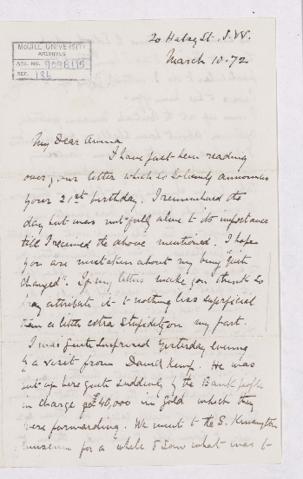 McGILL UNIVERSITY
ARCHIVES
ACC. NO.
REF.
St. S.W.
March 10. 72
My Dear Anna
I have just been reading
over your letter which so solemnly announces
your 21st birthday. I remembered the
day but was not fully alive to its importance
till I received the above mentioned. I hope
you are mistaken about my being quite
changed. If my letters make you think so
pray attribute it to nothing less superficial
than a little extra stupidity on my part.
I was quite surprised yesterday evening
by a visit from David Kemp. He was
sent up here quite suddenly by the Bank people
in charge of £40,000 in gold which they
were forwarding. We went to the S. Kensington
Museum for a while & saw what was to